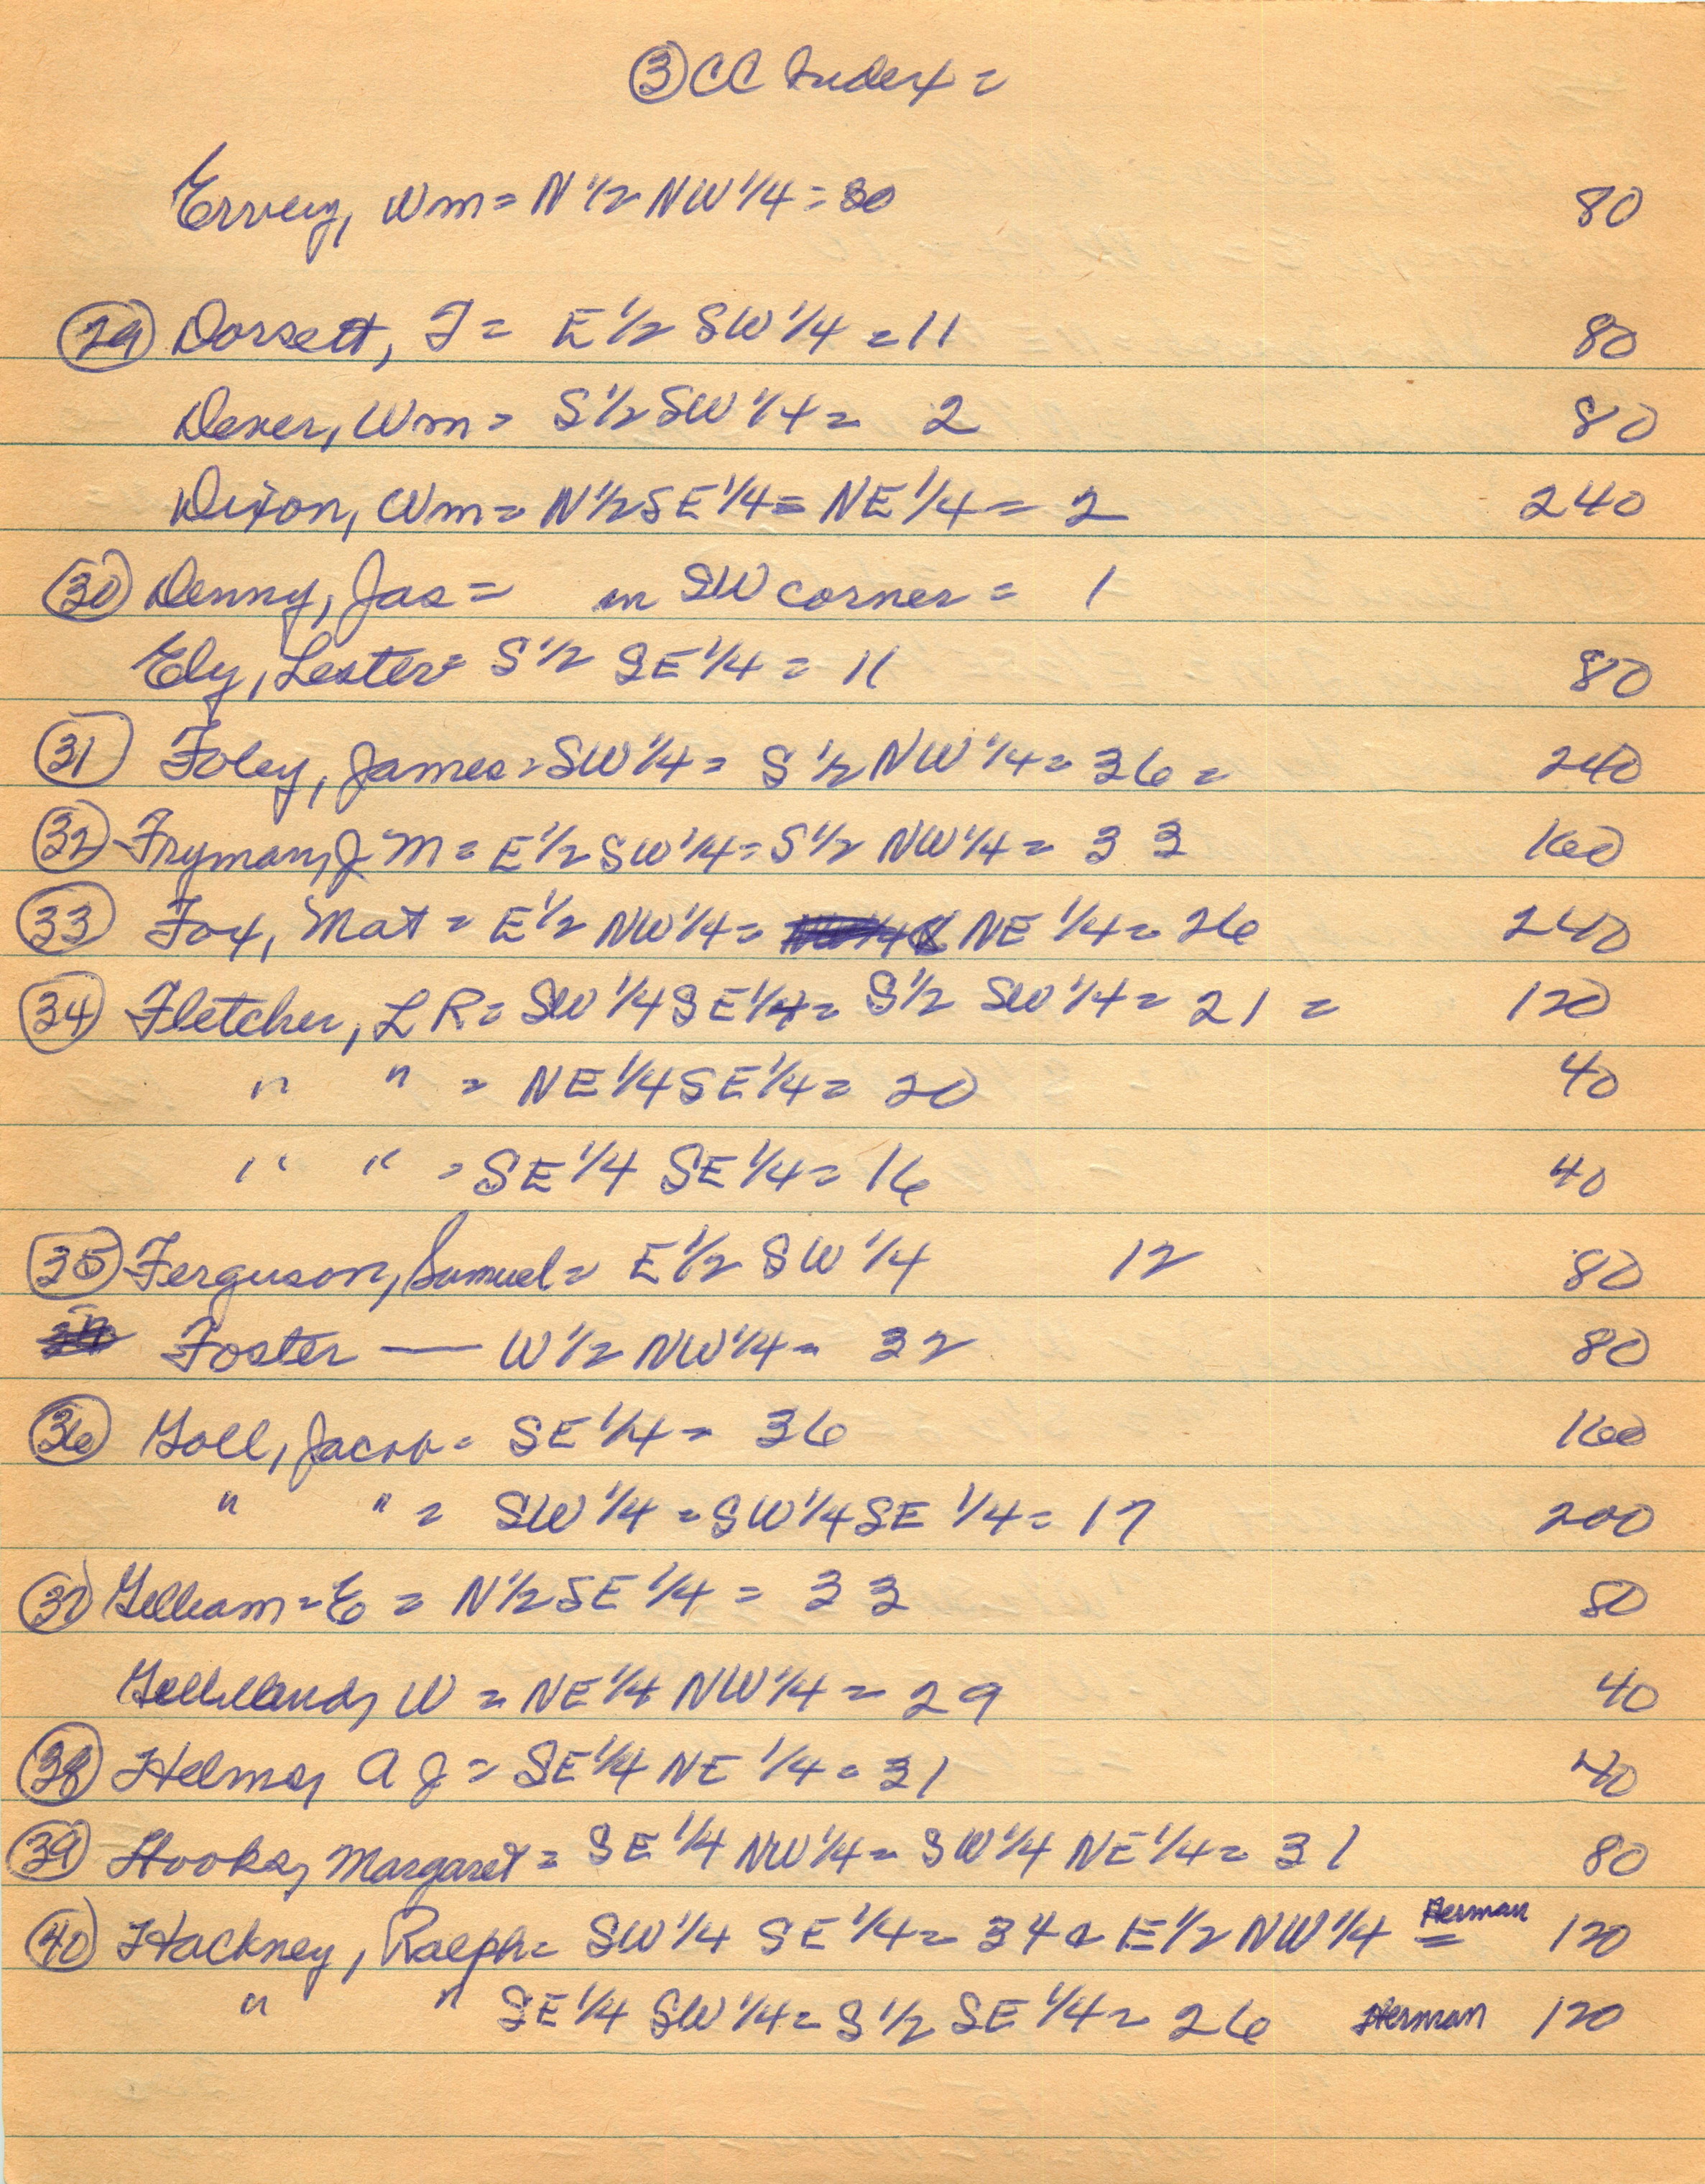 ③ CC Index =
Ervey, Wm = N 1/2 NW 1/4 = 30 80
㉙ Dorsett, J = E 1/2 SW 1/4 = 11 80
Dever, Wm = S 1/2 SW 1/4 = 2 80
Dixon, Wm = N 1/2 SE 1/4 = NE 1/4 = 2 240
㉚ Denny, Jas = in SW corner = 1
Ely, Lester = S 1/2 SE 1/4 = 11 80
㉛ Foley, James = SW 1/4 = S 1/2 NW 1/4 = 36 = 240
㉜ Fryman, J M = E 1/2 SW 1/4 = S 1/2 NW 1/4 = 33 160
㉝ Fox, Mat = E 1/2 NW 1/4 = NE 1/4 = 26 240
㉞ Fletcher, L R = SW 1/4 SE 1/4 = S 1/2 SW 1/4 = 21 = 120
" " = NE 1/4 SE 1/4 = 20 40
" " = SE 1/4 SE 1/4 = 16 40
㉟ Ferguson, Samuel = E 1/2 SW 1/4 12 80
Foster — W 1/2 NW 1/4 = 32 80
㊱ Goll, Jacob = SE 1/4 = 36 160
" " = SW 1/4 = SW 1/4 SE 1/4 = 17 200
㊲ Gilliam = E = N 1/2 SE 1/4 = 33 80
Gillilland, W = NE 1/4 NW 1/4 = 29 40
㊳ Helms, A J = SE 1/4 NE 1/4 = 31 40
㊴ Hooks, Margaret = SE 1/4 NW 1/4 = SW 1/4 NE 1/4 = 31 80
㊵ Hackney, Ralph = SW 1/4 SE 1/4 = 34 = E 1/2 NW 1/4 = Herman 120
" " SE 1/4 SW 1/4 = S 1/2 SE 1/4 = 26 Herman 120